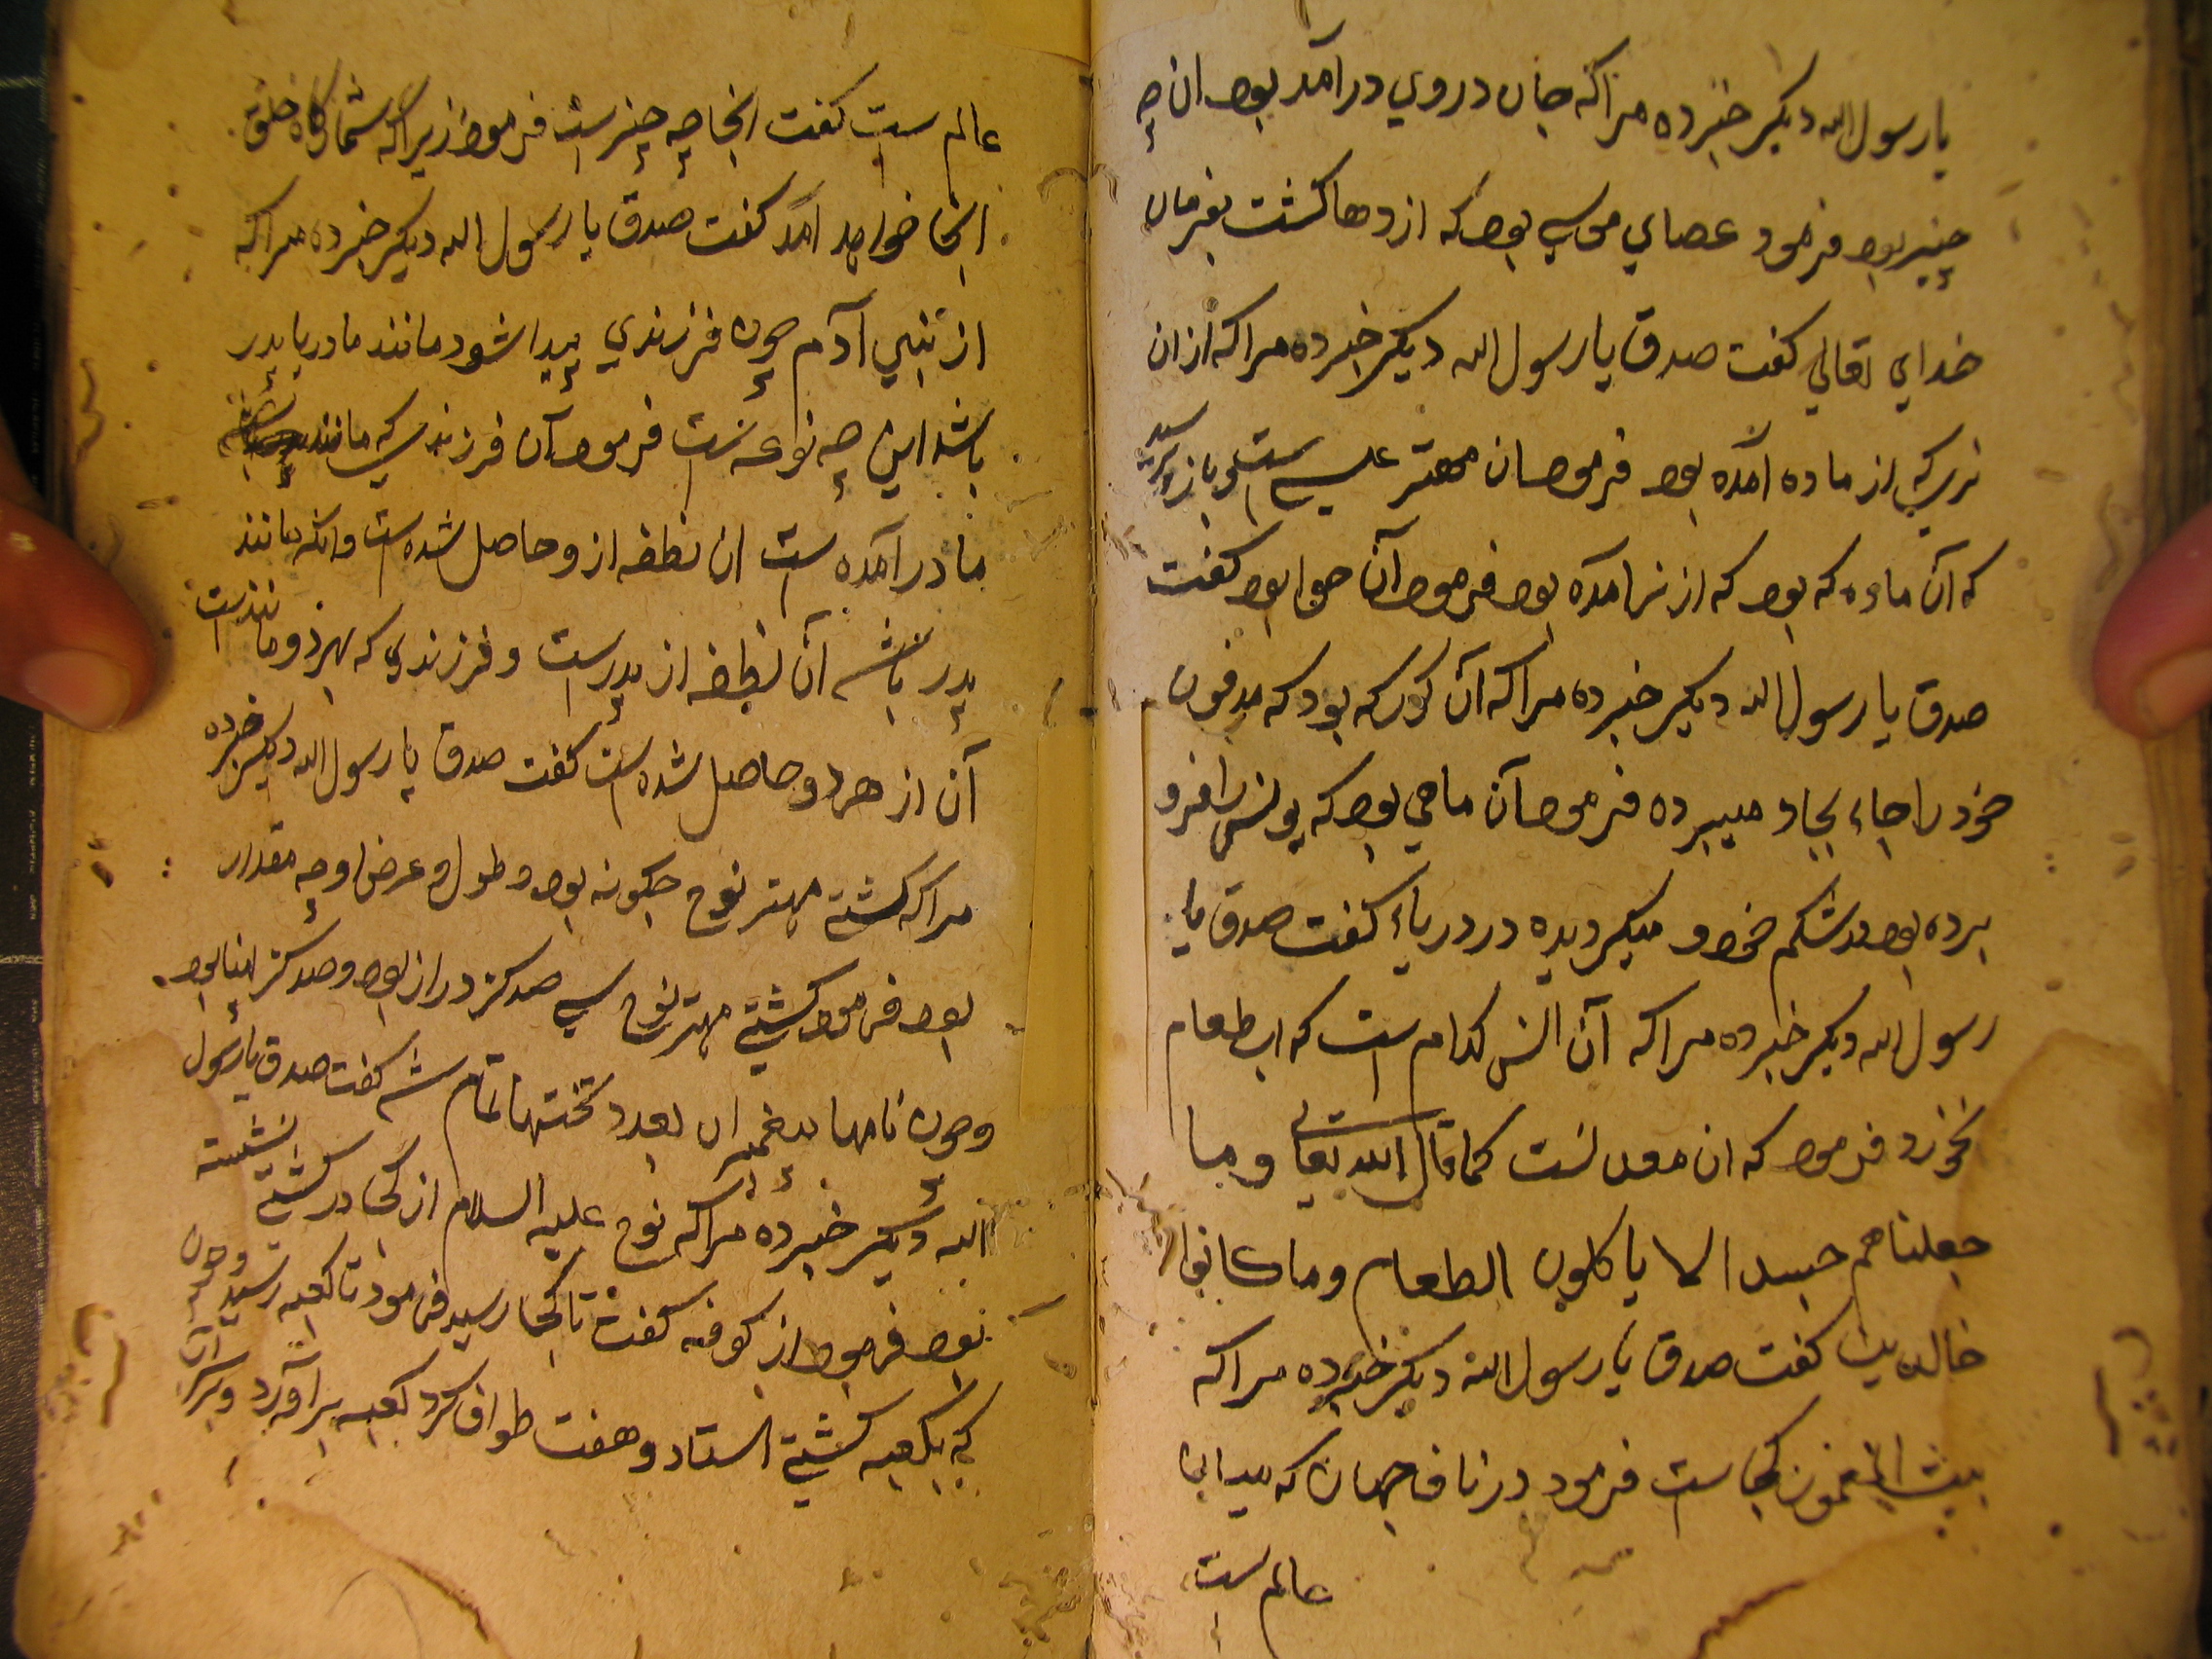 یا رسول الله دیکر خبر ده مرا که جان در وي درامد بود ان چه
چیز بود فرمود عصاي موسی بود که اژدها کشت بفرمان
خداي تعالي کفت صدق یا رسول الله دیکر خبر ده مرا که ازان
نری که از ماده آمده بود فرمود ان مهتر عیسی است و باز پرسید
که آن ماده که بود که از نر امده بود فرمود آن حوا بود کفت
صدق یا رسول الله دیکر خبر ده مرا که آن کور که بود که مدفون
خود را جاء بجا و میبرده فرمود آن ماهي بود که یونس را فرو
برده بود در شکم خود و میکردیده در دریاء کفت صدق یا
رسول الله دیکر خبر ده مرا که آن کدام است که اب طعام
نخورد فرمود که ان کما قال الله تعالی وما
جعلناهم جسدا لا یاکلون الطعام وما کانوا
خالدین کفت صدق یا رسول الله دیکر خبر ده مرا که
بیت المعمور کجاست فرمود در ناف جهان که میدان
عالم ست
عالم ست کفت انجا چه چیز است فرمود زیرا که شما کاه خلق
انجا خواهد امد کفت صدق یا رسول الله دیکر خبر ده مرا که
از بني آدم چون فرزندي پیدا شود مانند مادر یا پدر
باشد این چه نوعست فرمود آن فرزندی که مانند
مادر آمده ست ان نطفه از و حاصل شده است وانکه مانند
پدر باشد آن نطفه از پدر ست و فرزندي که بهر دو مانند است
آن از هر دو حاصل شده ست کفت صدق یا رسول الله دیکر خبر ده
مرا که کشتی مهتر نوح چکونه بود و طول و عرض او چه مقدار
بود فرمود کشتی مهتر نوح سی صد کز دراز بود و صد کز پهنا بود
وچون نامها پیغمبران بعدد تختها تمام شد کفت صدق یا رسول
الله دیکر خبر ده مرا که نوح علیه السلام از کجا در کشتی نشسته
بود فرمود از کوفه کفت تا کجا رسید فرمود تا کعبه رسید وچون
که بکعبه کشتی استاد و هفت طواف کرد کعبه برآورد وبر سر آن